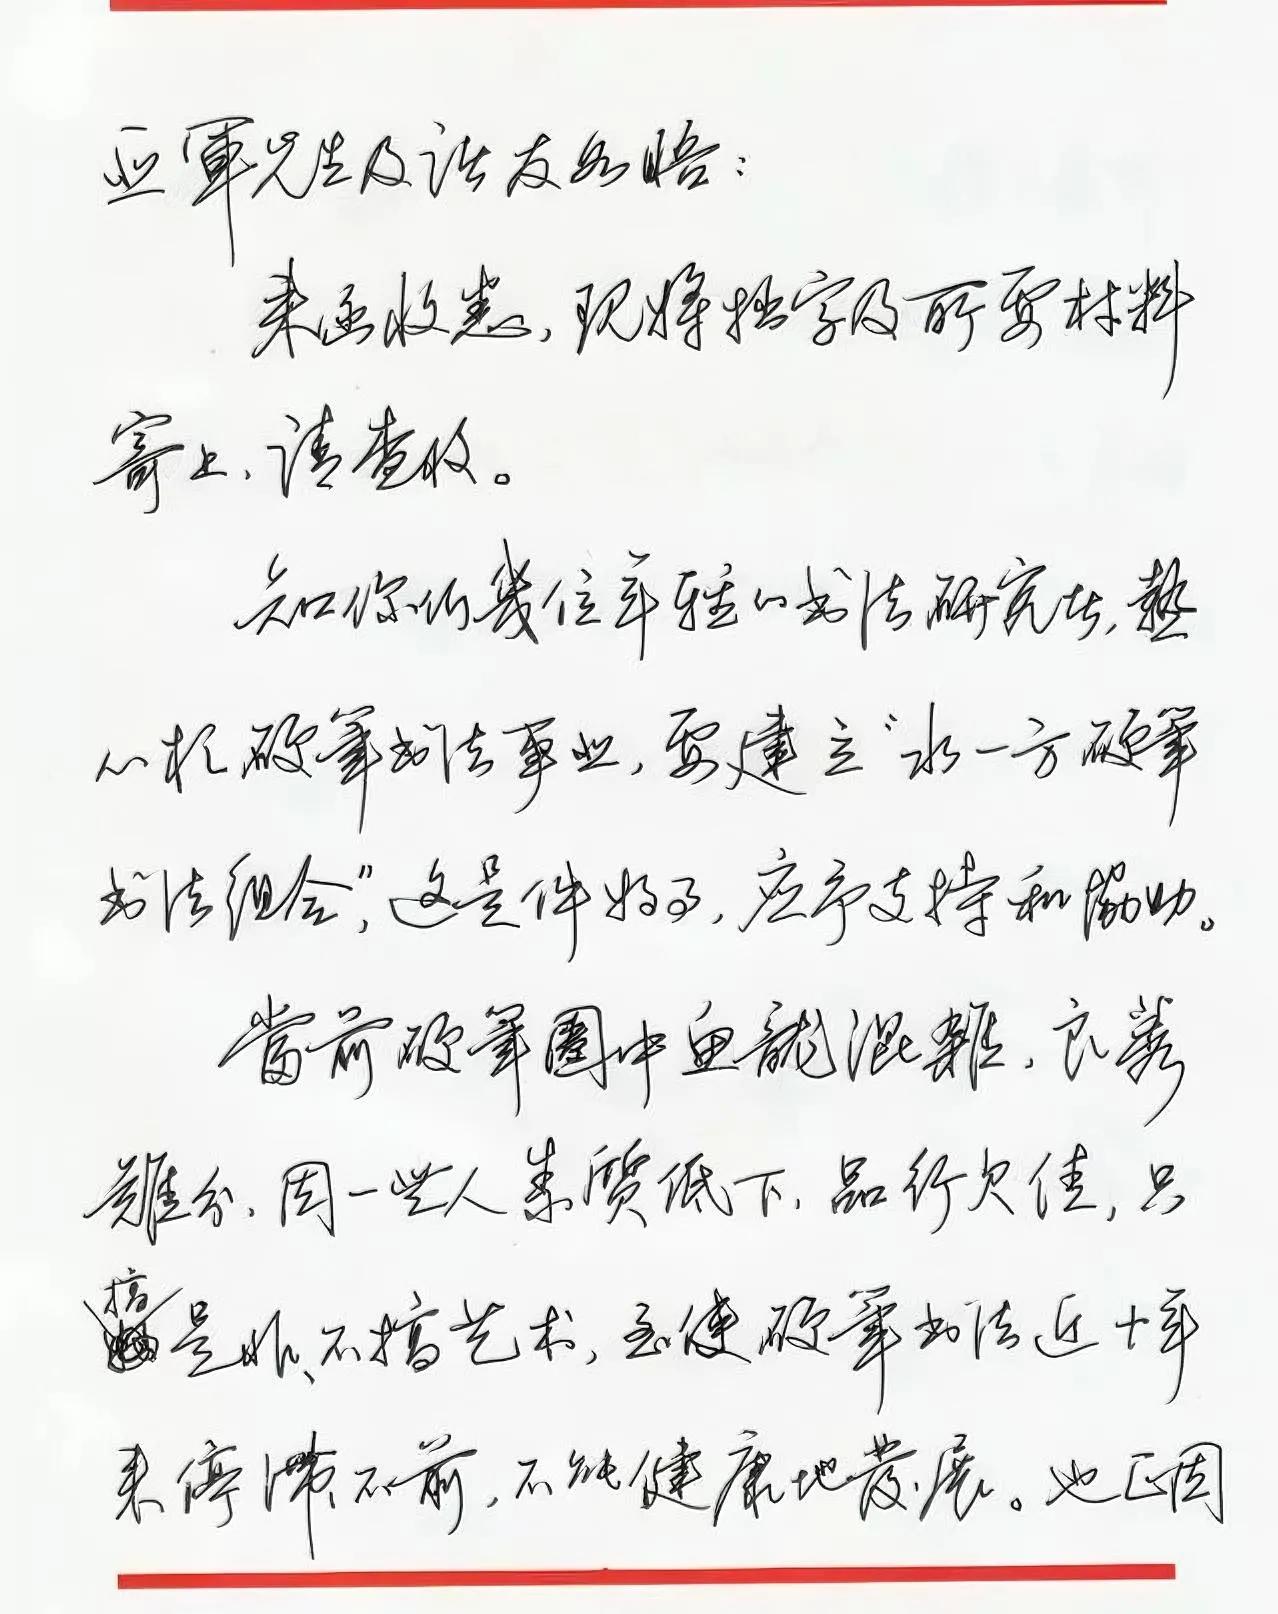 亚軍先生及诸友如晤：
来函收悉，现将拙字及所要材料
寄上，请查收。
知你们幾位年轻的书法研究者，熱
心於硬筆书法事业，要建立“水一方硬筆
书法组合”，这是件好事，应予支持和協助。
當前硬筆圈中鱼龍混雜，良莠
難分，因一些人素質低下，品行欠佳，只
搞是非、不搞艺术，致使硬筆书法近十年
来停滯不前，不能健康地發展。也正因